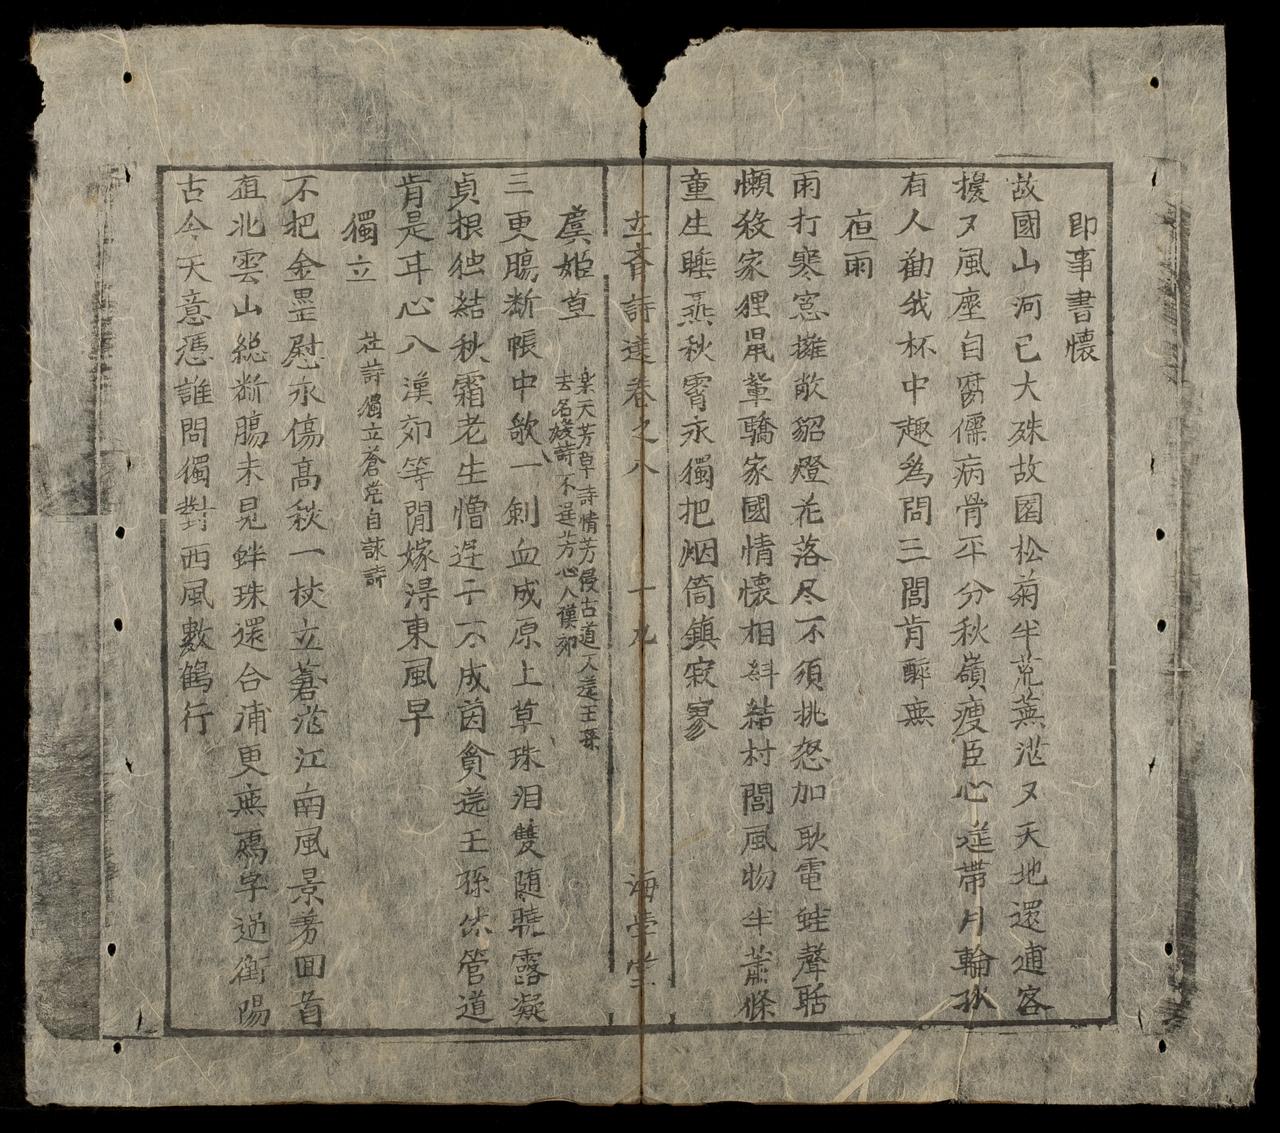 即事書懷
故國山河已大殊故園松菊半荒蕪滥又天地還逋客
擾又風塵自腐儒病骨平分秋嶺瘦臣心遥帶月輪孤
有人勸我杯中趣爲問三閭肯醉無
夜雨
雨打寒窓擁敝貂燈花落尽不須挑愁加耿電蛙聲聒
懶殺家狸鼠輩驕家國情懷相糾結村閭風物半蕭條
童生睡熟秋宵永獨把烟筒鎮寂寥
立斎詩逹卷之八 十九 海學堂
虞姬草
楽天芳草詩情芳侵古道人送王孫
去名媛詩不選芳心人漢郊
三更腸断帳中歌一剣血成原上草珠泪雙随曉露凝
貞根独結秋霜老生憎逆子不成茵貧送王孫休管道
肯是耳心入漢郊等閒嫁得東風早
獨立 杜詩獨立蒼茫自詠詩
不把金罍慰永傷高秋一杖立蒼茫江南風景労回首
直北雲山総断腸未見蚌珠還合浦更無鴈字過衡陽
古今天意憑誰問獨對西風數鶴行